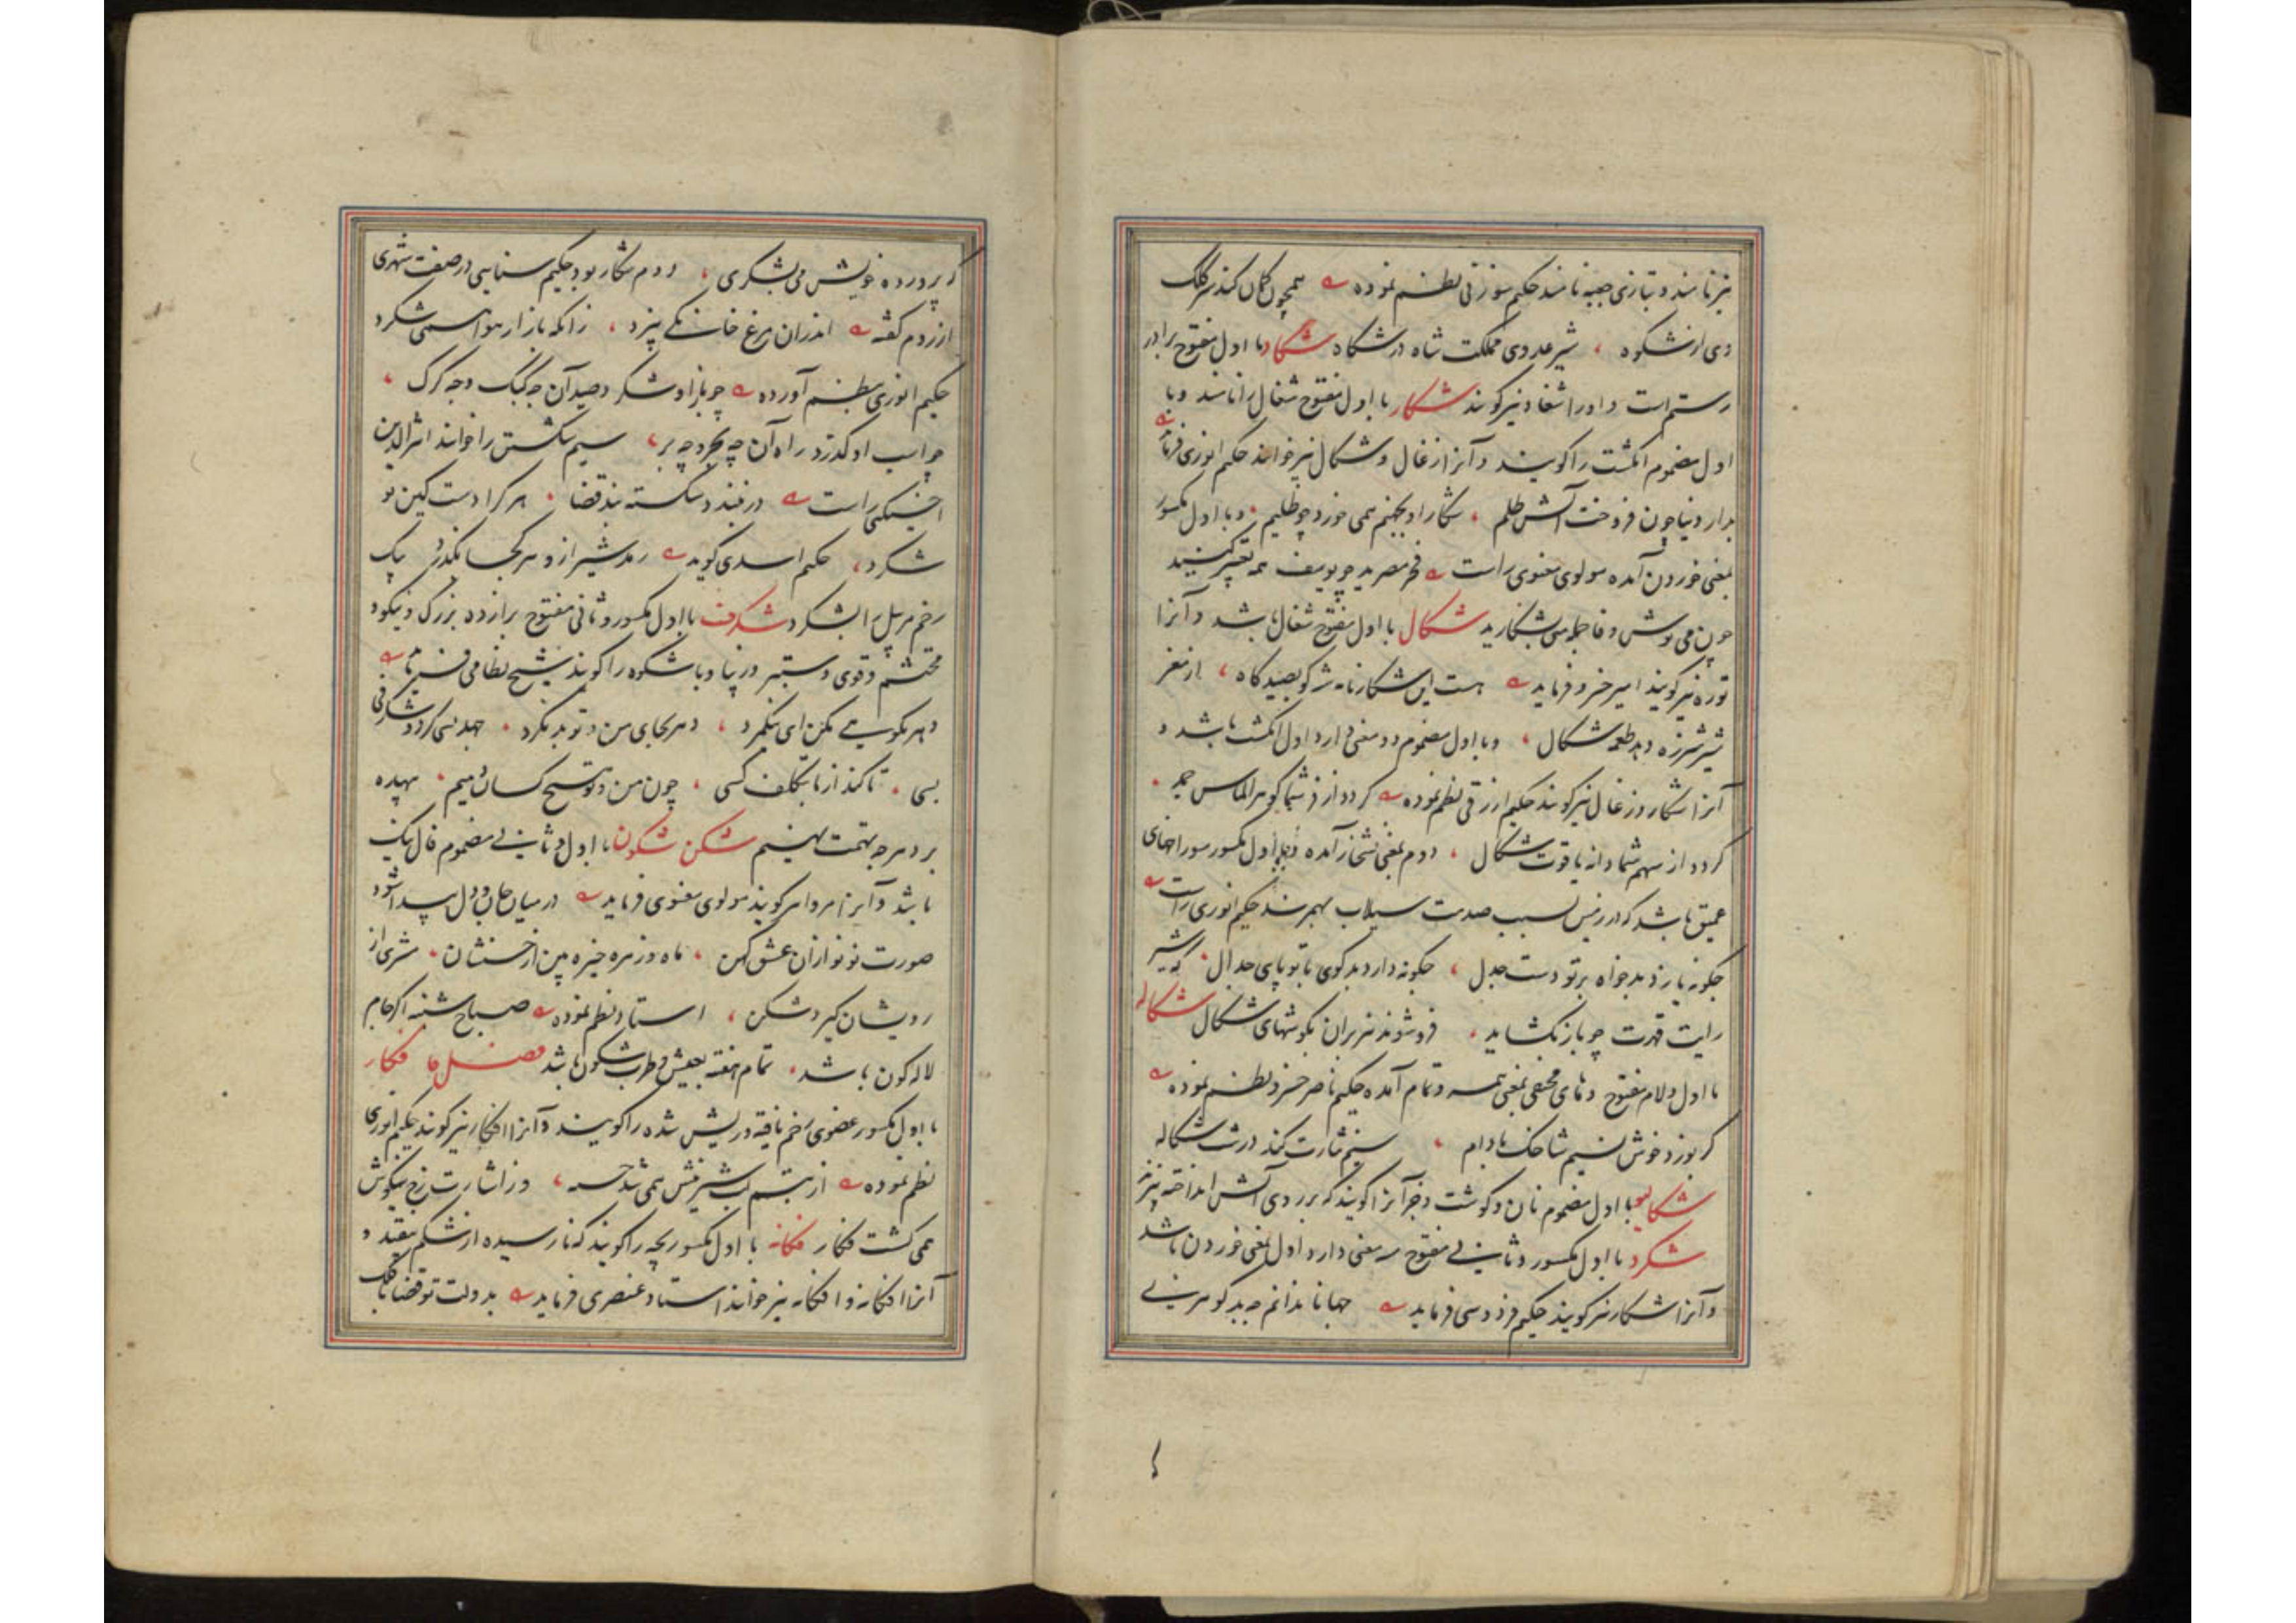 نیز نامند و بتازی جعبه نامند حکیم سوزنی نظم نموده همچون کمان کند سر کلک
وی از شکوه شیر عدوی مملکت شاه در شکاه شکاد با اول مفتوح برادر
رستم است و او را شغاد نیز گویند شکار با اول مفتوح شغال را نامند و با
اول مضموم انگشت را گویند و آنرا زغال و شکال نیز خوانند حکیم انوری فرماید
بدار دنیا چون فروخت آتش ظلم شکار او بجهنم همی خورد چو ظلیم و با اول مکسور
بمعنی خوردن آمده مولوی معنوی راست فخر مصرید چو یوسف همه تعبیر کنید
چون می نوش و فا جمله می بشکارید شکال با اول مفتوح شغال باشد و آنرا
توره نیز گویند امیر خسرو فرماید هست این شکارنامه شه کو بصیدگاه از مغز
شیر شرزه دهد طعمه شکال و با اول مضموم دو معنی دارد اول انگشت باشد و
آنرا شکار و زغال نیز گویند حکیم ازرقی نظم نموده گردد از فر شما گوهر الماس جمر
گردد از سهم شما دانه یاقوت شکال دوم بمعنی شخار آمده و با اول مکسور سوراخهای
عمیق باشد که در زمین بسبب صدمت سیلاب بهمرسد حکیم انوری راست
چگونه یازد بدخواه بر تو دست جدل چگونه دارد بدگوی با تو پای جدال که شیر
رایت قهرت چو باز بگشاید فرو شوند هزبران بگوشهای شکال شکاله
با اول و لام مفتوح و های مختفی بمعنی همه و تمام آمده حکیم ناصر خسرو نظم نموده
گر بوزد خوش نسیم شاخک بادام سیم نثارت کند درست شکاله
با اول مضموم نان و گوشت و جز آنرا گویند که بر روی آتش انداخته پزند
شکرد با اول مکسور و ثانی مفتوح سه معنی دارد اول بمعنی خوردن باشد
و آنرا شکار نیز گویند حکیم فردوسی فرماید جهانا ندانم چه بد گوهرینی
که پرورده خویش می بشکری دوم شکار بود حکیم سنایی در صفت شهری
از روم گفته اندران مرغ خانگی نپرد زانکه باز از هواش می شکرد
حکیم انوری بنظم آورده چو باز او شکرد صید آن چه کبک و چه کرگ
چو اسب او گذرد راه آن چه بحر و چه بر سیم شکستن را خوانند اثیرالدین
اخسیکتی راست در فتد و شکسته بند قضا هر کرا دست کین تو
شکرد حکیم اسدی گوید رمد شیر از و هر کجا بگذرد بیک
زخم مر پیل را بشکرد شکرف با اول مکسور و ثانی مفتوح برازنده بزرگ و نیکو و
محتشم و قوی و ستبر و زیبا و با شکوه را گویند شیخ نظامی فرماید
بسی تا کند از ما بتکلف کسی چون من و تو هیچ کسان دهیم بیهده
بر دهر چه تهمت نهیم شکن شکون با اول و ثانی مضموم فال نیک
باشد و آنرا مروا هم گویند مولوی معنوی فرماید در میان جان و دل پیدا شود
صورت نو نو از آن عشق کهن ماه و زهره خیره بین از حسنشان مشتری از
رویشان گیرد شکن استاد نظم نموده صباح شنبه اگر جام
لاله گون باشد تمام هفته بعیش و طرب شکون باشد فصل فا فکار
با اول مکسور عضوی زخم یافته و ریش شده را گویند و آنرا افکار نیز گویند حکیم انوری
نظم نموده از تبسم لب شیرینش همی شد خسته وز اشارت رخ نیکوش
همی گشت فکار فکانه با اول مکسور بچه را گویند که نارسیده از شکم بیفتد و
آنرا افکانه و افگانه نیز خوانند استاد عنصری فرماید بدولت تو قضا با فلک